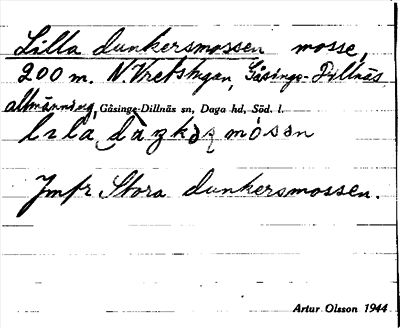 Lilla dunkersmossen mosse,
200 m. N. Vretstugan, Gåsinge-Dillnäs
allmänning, Gåsinge-Dillnäs sn, Daga hd, Söd. l.
lila
Jmfr Stora dunkersmossen.
Artur Olsson 1944